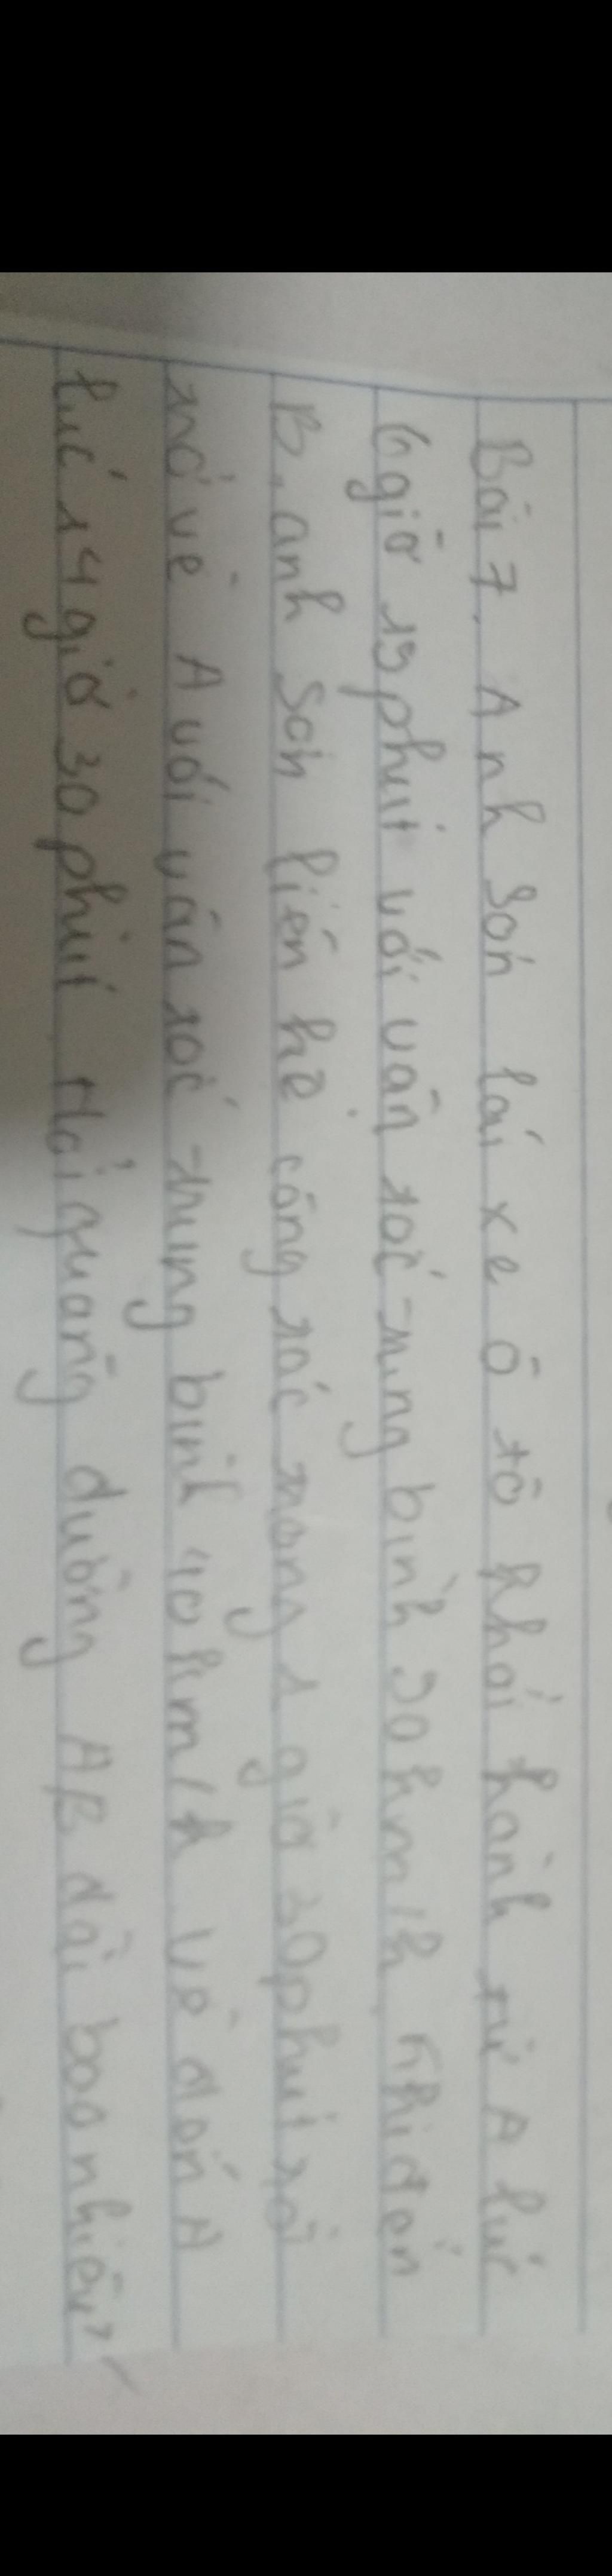 Bài 7. Anh Sơn lái xe ô tô khởi hành từ A lúc
6 giờ 15 phút với vận tốc trung bình 50 km/h. Khi đến
B, anh Sơn liên hệ công tác trong 1 giờ 30 phút rồi
trở về A với vận tốc trung bình 40 km/h và đến A
lúc 14 giờ 30 phút. Hỏi quãng đường AB dài bao nhiêu?